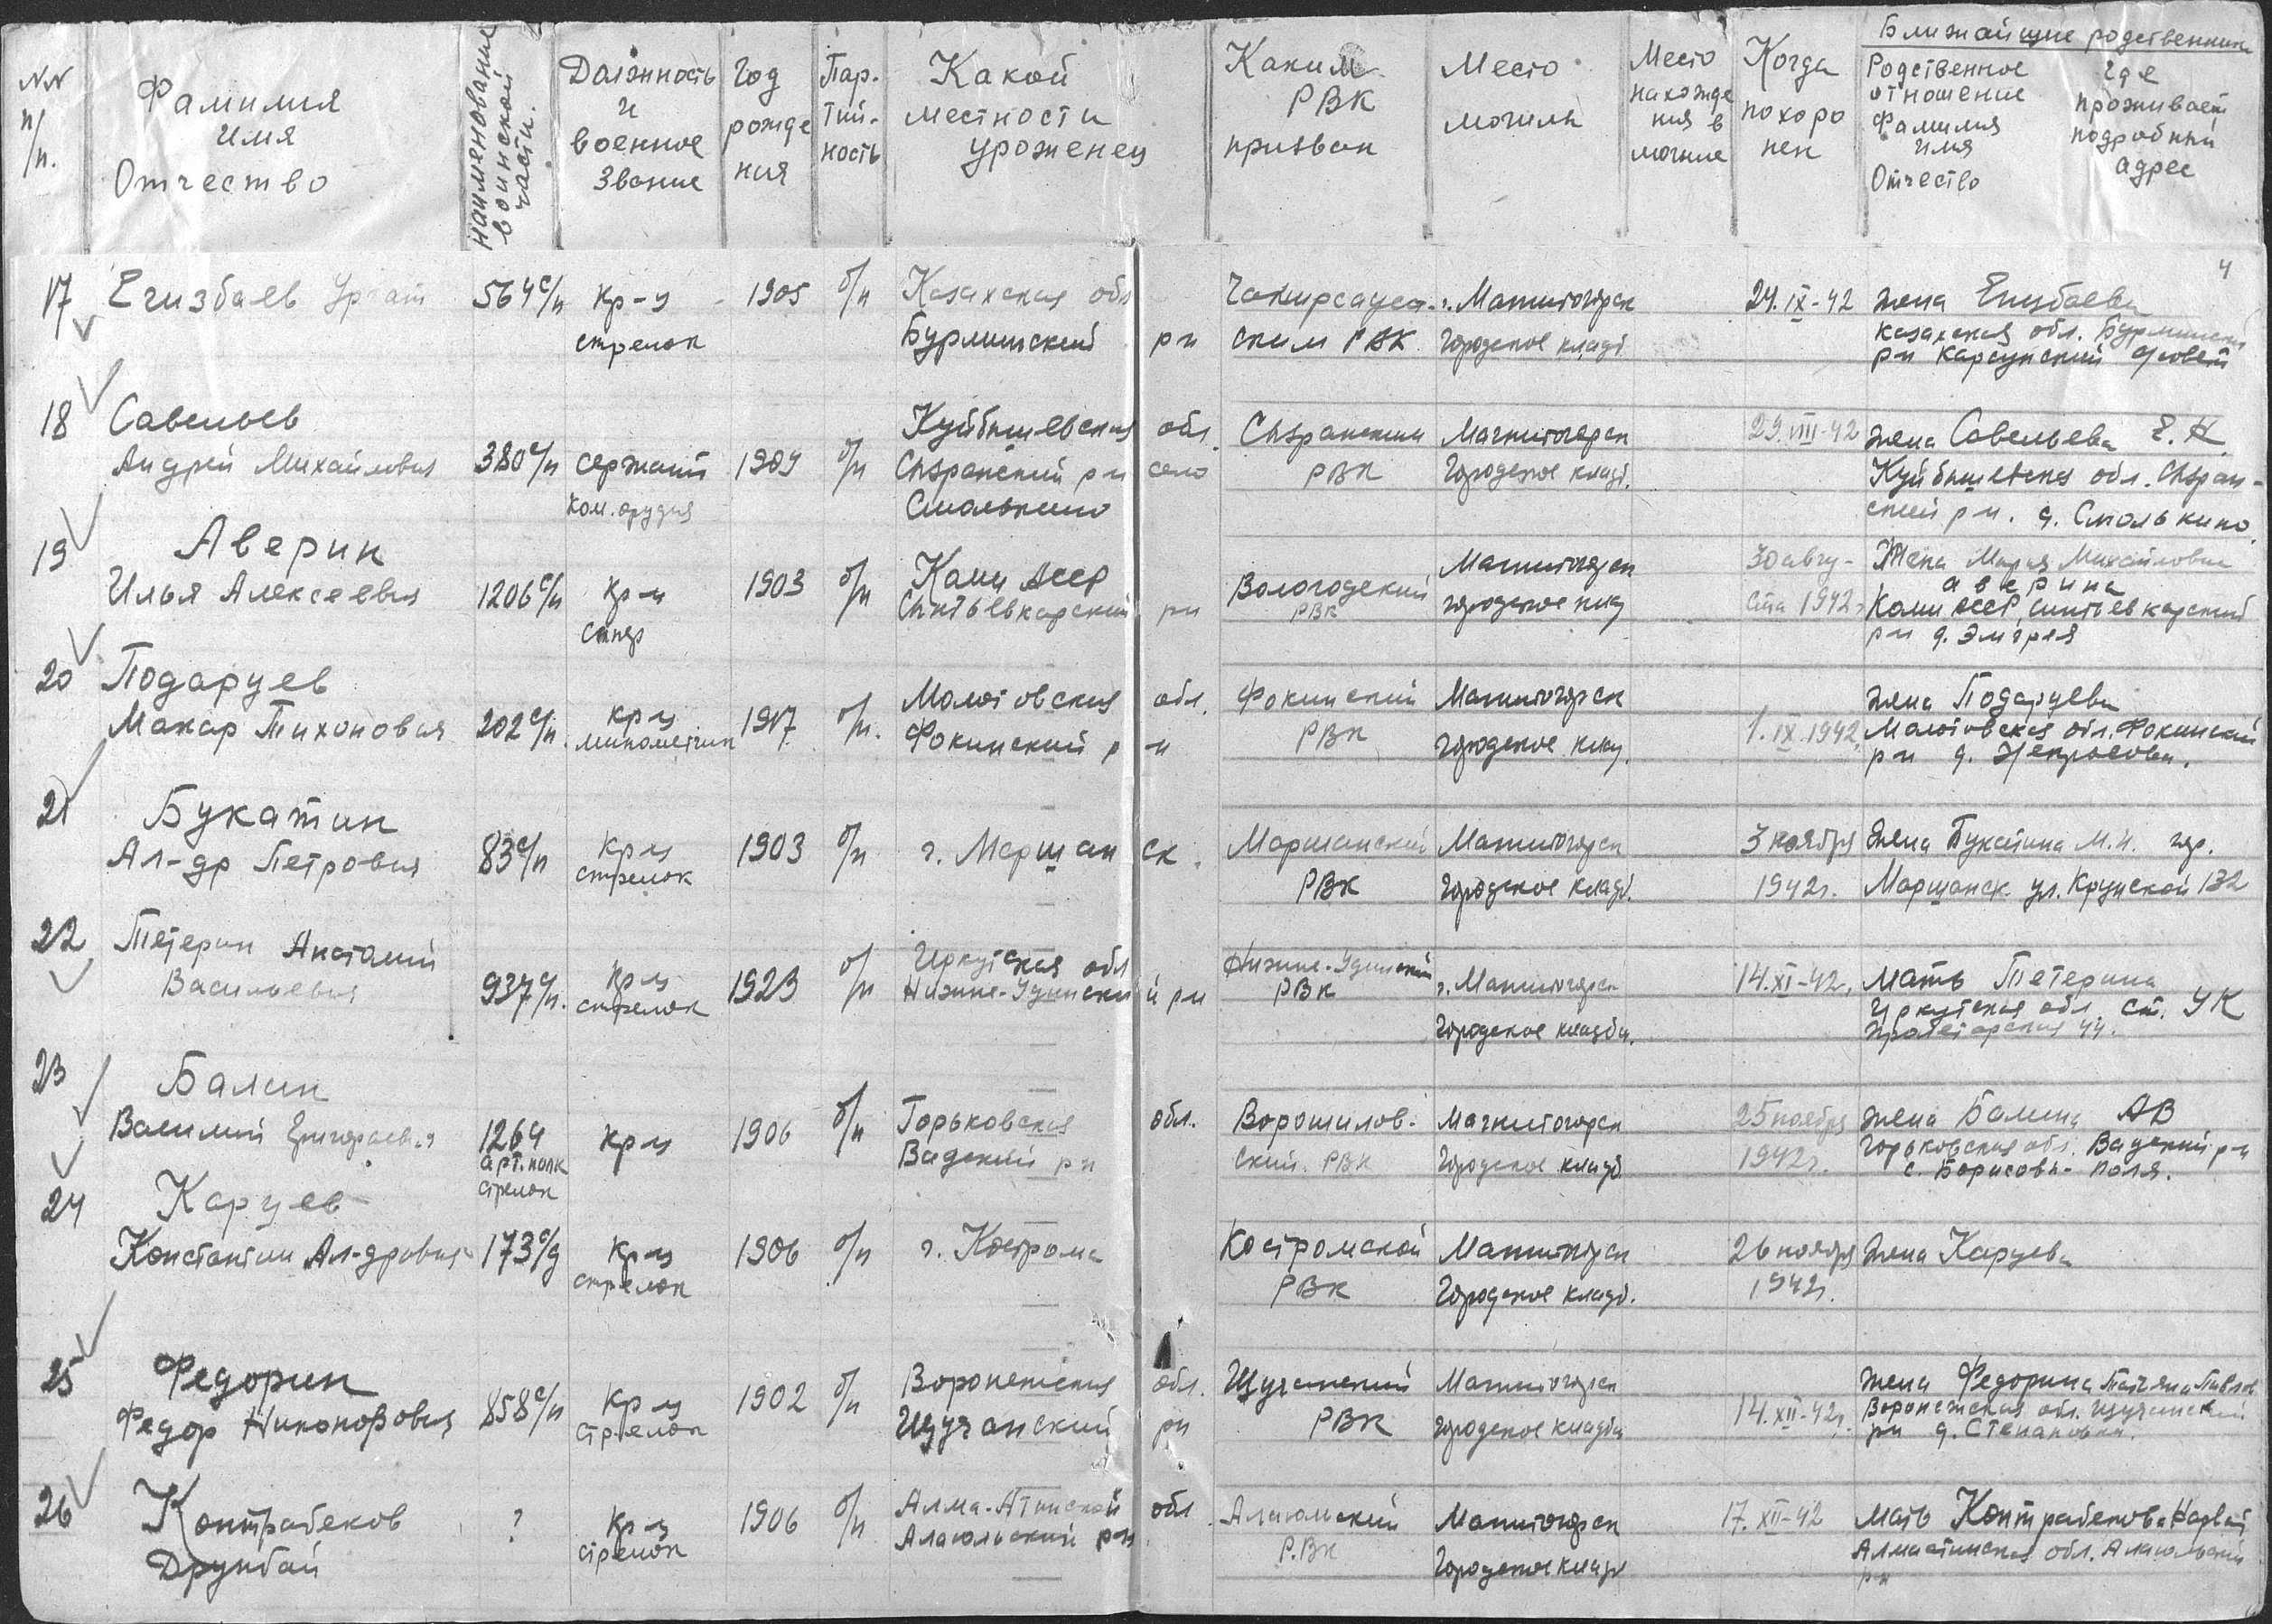 NN п/п.
Фамилия Имя Отчество
Наименование воинской части.
Должность и военное звание
Год рождения
Партийность
Какой местности уроженец
Каким РВК призван
Место могилы
Место нахождения в могиле
Когда похоронен
Ближайшие родственники
Родственное отношение Фамилия имя Отчество
где проживает подробный адрес
4
17 Егизбаев 564 с/п Кр-ц 1905 б/п Казахская обл г. Магнитогорск 24.IX-42 жена Егизбаева
стрелок Бурлинский р-н ским РВК городское кладб. Казахская обл. Бурлинский
р-н Карсунский с/совет
18 Савельев Куйбышевская обл. Сызранский Магнитогорск 29.VIII-42 жена Савельева Е. Н.
Андрей Михайлович 380 с/п сержант 1909 б/п Сызранский р-н село РВК городское кладб. Куйбышевская обл. Сызран-
ком. орудия Смолькино ский р-н. д. Смолькино.
19 Аверин Коми АССР Магнитогорск 30 авгу- Жена Мария Михайловна
Илья Алексеевич 1206 с/п кр-ц 1903 б/п Сыктывкарский р-н Вологодский РВК городское клад ста 1942г Аверина
Коми АССР, Сыктывкарский
р-н д.
20 Подаруев Молотовская обл. Фокинский Магнитогорск жена Подаруева
Макар Тихонович 202 с/п. кр-ц 1917 б/п. Фокинский р-н РВК городское клад. 1.IX.1942. Молотовская обл. Фокинский
минометчик р-н д. Некрасова.
21 Букатин
Ал-др Петрович 83 с/п Кр-ц 1903 б/п г. Моршанск. Моршанский Магнитогорск 3 ноября жена Букатина М.И. гор.
стрелок РВК городское кладб. 1942г. Моршанск ул. Крупской 132
22 Тетерин Анатолий Иркутская обл Нижне-Удинский
Васильевич 937 с/п. кр-ц 1923 б/п Нижне-Удинский р-н РВК г. Магнитогорск 14.XI-42. Мать Тетерина
стрелок городское кладби. Иркутская обл. ст. УК
Пролетарская 44.
23 Балин
Василий Григорьевич 1264 Кр-ц 1906 б/п Горьковская обл. Ворошилов- Магнитогорск 25 ноября жена Балина АВ
арт. полк Вадский р-н ский. РВК городское кладб 1942г. Горьковская обл. Вадский р-н
стрелок с. Борисово-Поля.
24 Каруев
Константин Ал-дрович 173 с/д Кр-ц 1906 б/п г. Кострома Костромской Магнитогорск 26 ноября жена Каруева
стрелок РВК городское кладб. 1942г.
25 Федорин Воронежская обл. Щучанский Магнитогорск жена Федорина Татьяна Павлов.
Федор Никонорович 858 с/п Кр-ц 1902 б/п Щучанский р-н РВК городское кладби 14.XII-42г. Воронежская обл. Щучанский
стрелок р-н д. Степановка.
26 Контрабеков Алма-Атинской обл. Алакульский Магнитогорск 17.XII-42 мать Контрабекова
Друнбай ? Кр-ц 1906 б/п Алакульский р-н Р.ВК городское кладб Алмаатинская обл. Алакульский
стрелок р-н